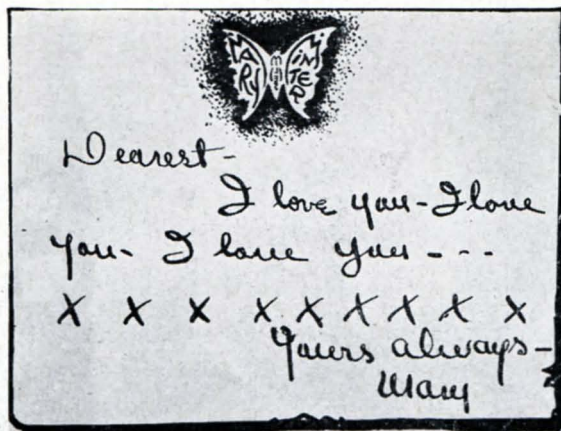 MARY MILES MINTER
Dearest-
I love you-I love
you- I love you - - -
X X X X X X X X X
Yours always-
Mary